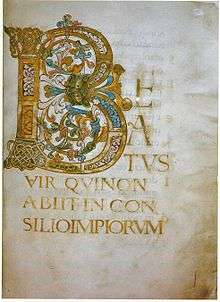 BE
A
TVS
VIR QVINON
ABIIT IN CON
SILIOIMPIORVM